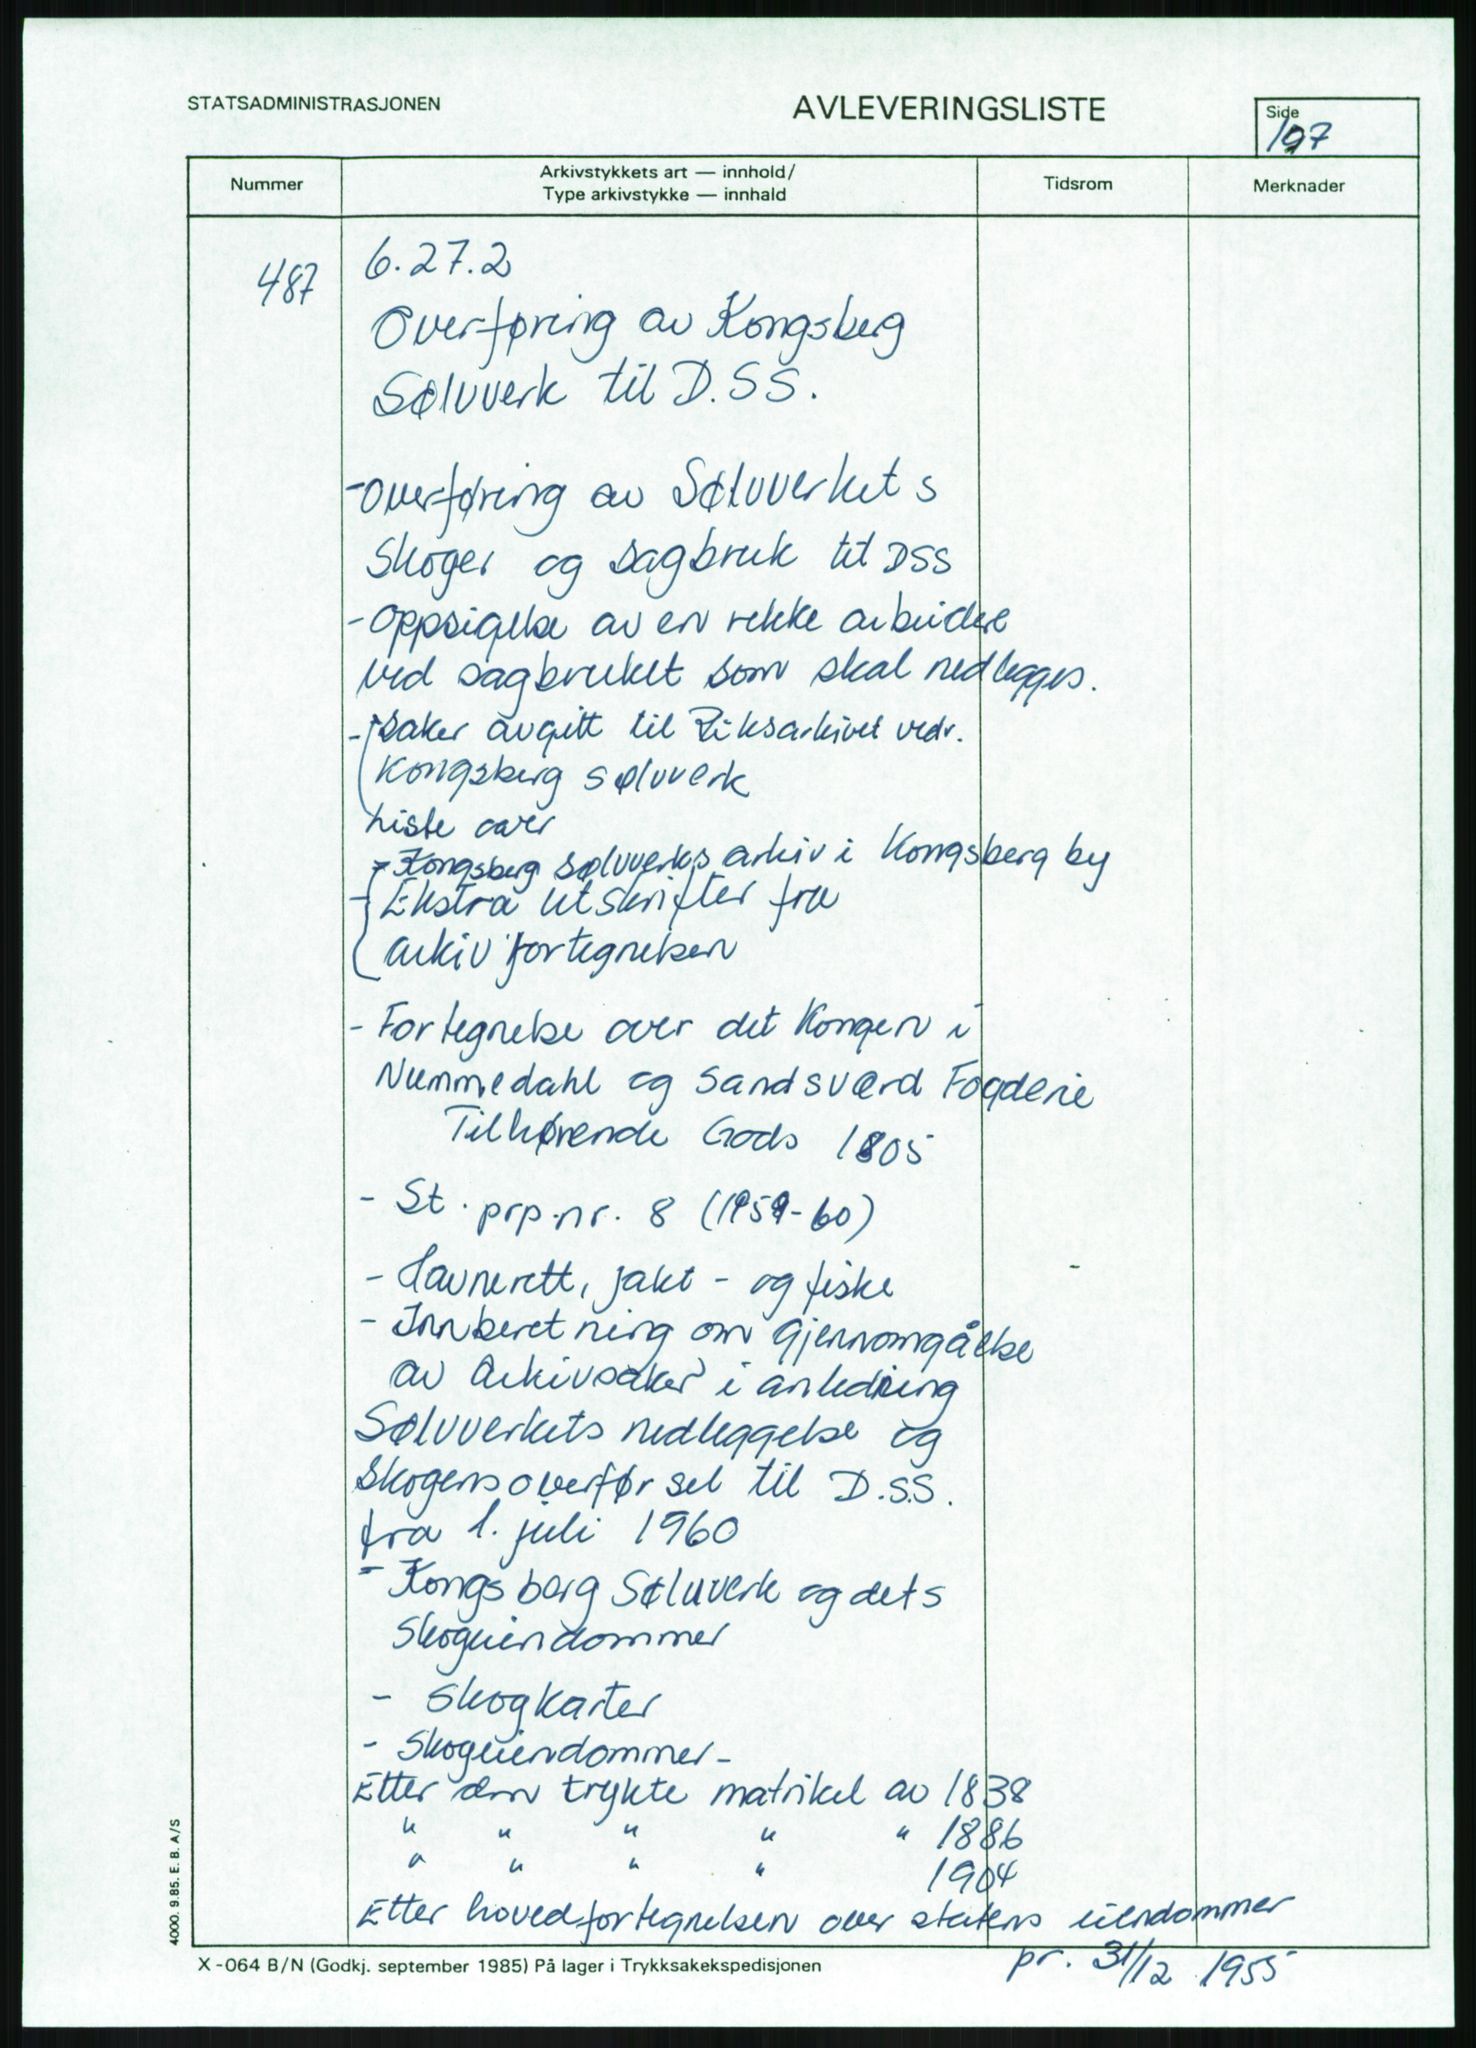 STATSADMINISTRASJONEN
AVLEVERINGSLISTE
Side
197
Nummer
Arkivstykkets art — innhold/
Type arkivstykke — innhald
Tidsrom
Merknader
487
6.27.2
Overføring av Kongsberg
Sølvverk til D.SS.
- Overføring av Sølvverkets
Skoger og sagbruk til DSS
- Oppsigelse av en rekke arbeidere
ved sagbruket som skal nedlegges.
- Saker avgitt til Riksarkivet vedr.
Kongsberg sølvverk
Liste over
- Kongsberg sølvverks arkiv i Kongsberg by
- Ekstra utskrifter fra
arkivfortegnelsen
- Fortegnelse over det Kongen i
Nummedahl og Sandsværd Fogderie
Tilhørende Gods 1805
- St. prp. nr. 8 (1959-60)
- Havnerett, jakt- og fiske
- Innberetning om gjennomgåelse
av Arkivsaker i anledning
Sølvverkets nedleggelse og
skogens overførsel til D.S.S.
fra 1. juli 1960
- Kongsberg Sølvverk og dets
Skogeiendommer
- Skogkarter
- Skogeiendommer-
Etter den trykte matrikel av 1838
" " " " " 1886
" " " " 1904
Etter hovedfortegnelsen over statens eiendommer
pr. 31/12 1955
4000. 9.85. E. B. A/S
X-064 B/N (Godkj. september 1985) På lager i Trykksakekspedisjonen